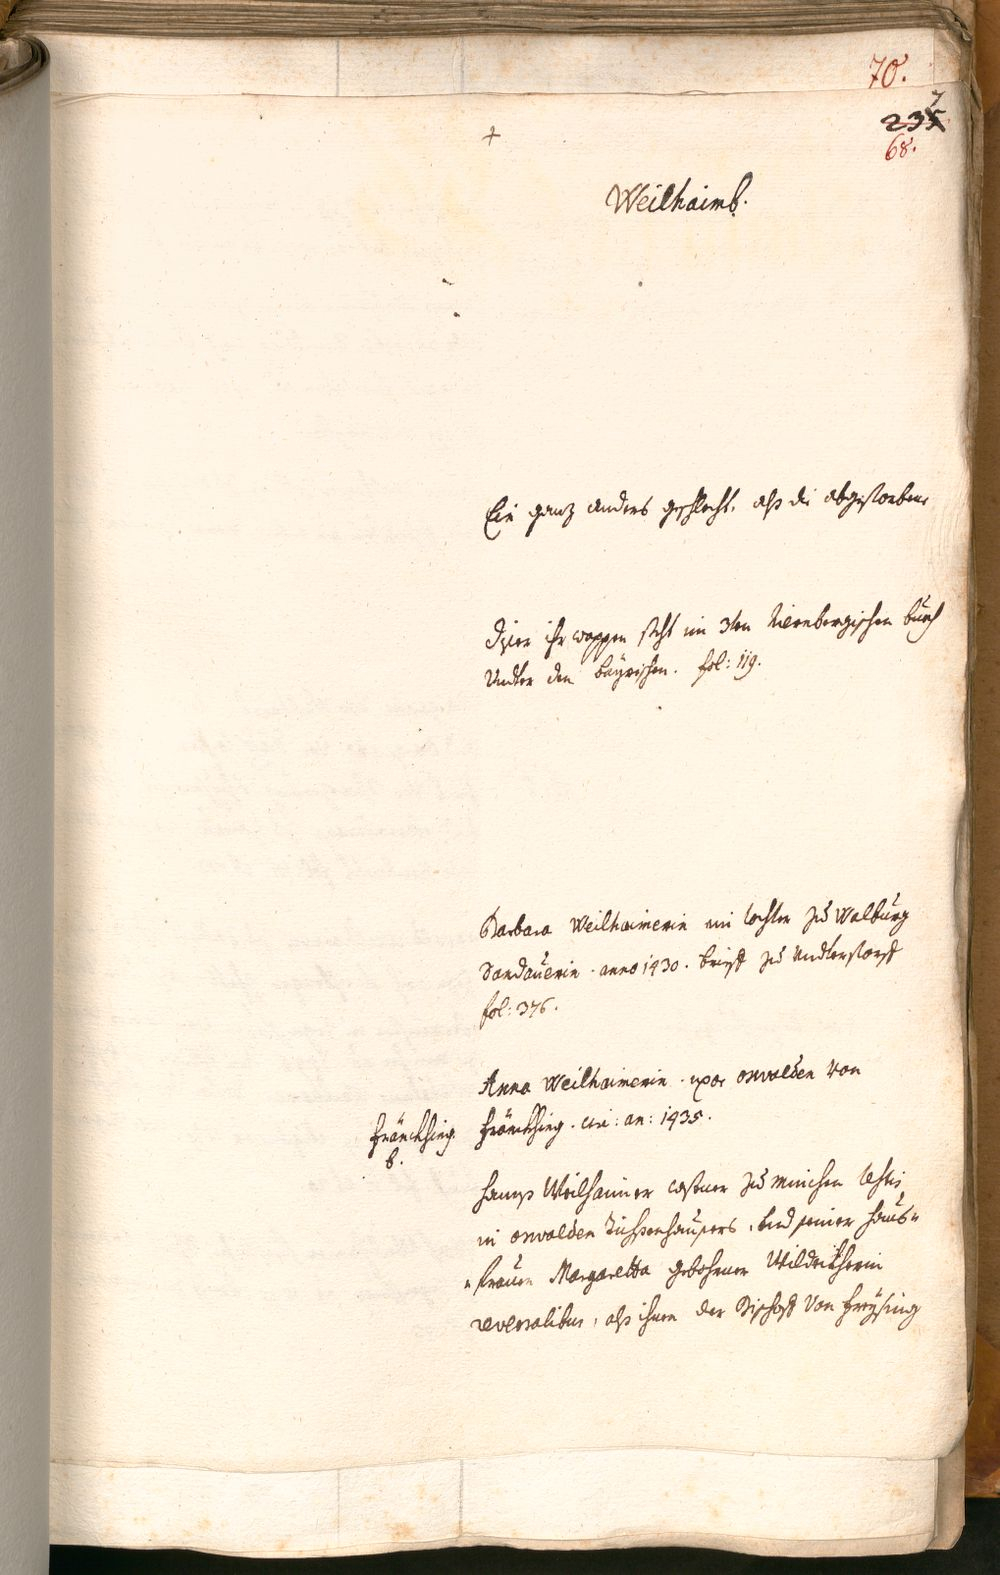 70.
7
235
68.
+
Weilhaimb.
Ein ganz anders geschlecht. alß die abgestorbene
Diser ihr wappen steht im 3ten Niernbergischen buech
Undter den bayrischen. fol: 119.
Barbara Weilhaimerin ein tochter zu Walburg
Sandauerin. anno 1430. brieff zu Undterstorff
fol: 376.
Anna Weilhaimerin. uxor oswalden Von
Fränckhing. circ: an: 1435.
Fränckhing.
b.
Hanns Weilhaimer castner zu München testis
in oswalden Tuchsenhausers. und seiner haus-
frauen Margaretta gebohrner
reversalibus, alß ihnen der Bischoff Von Freysing